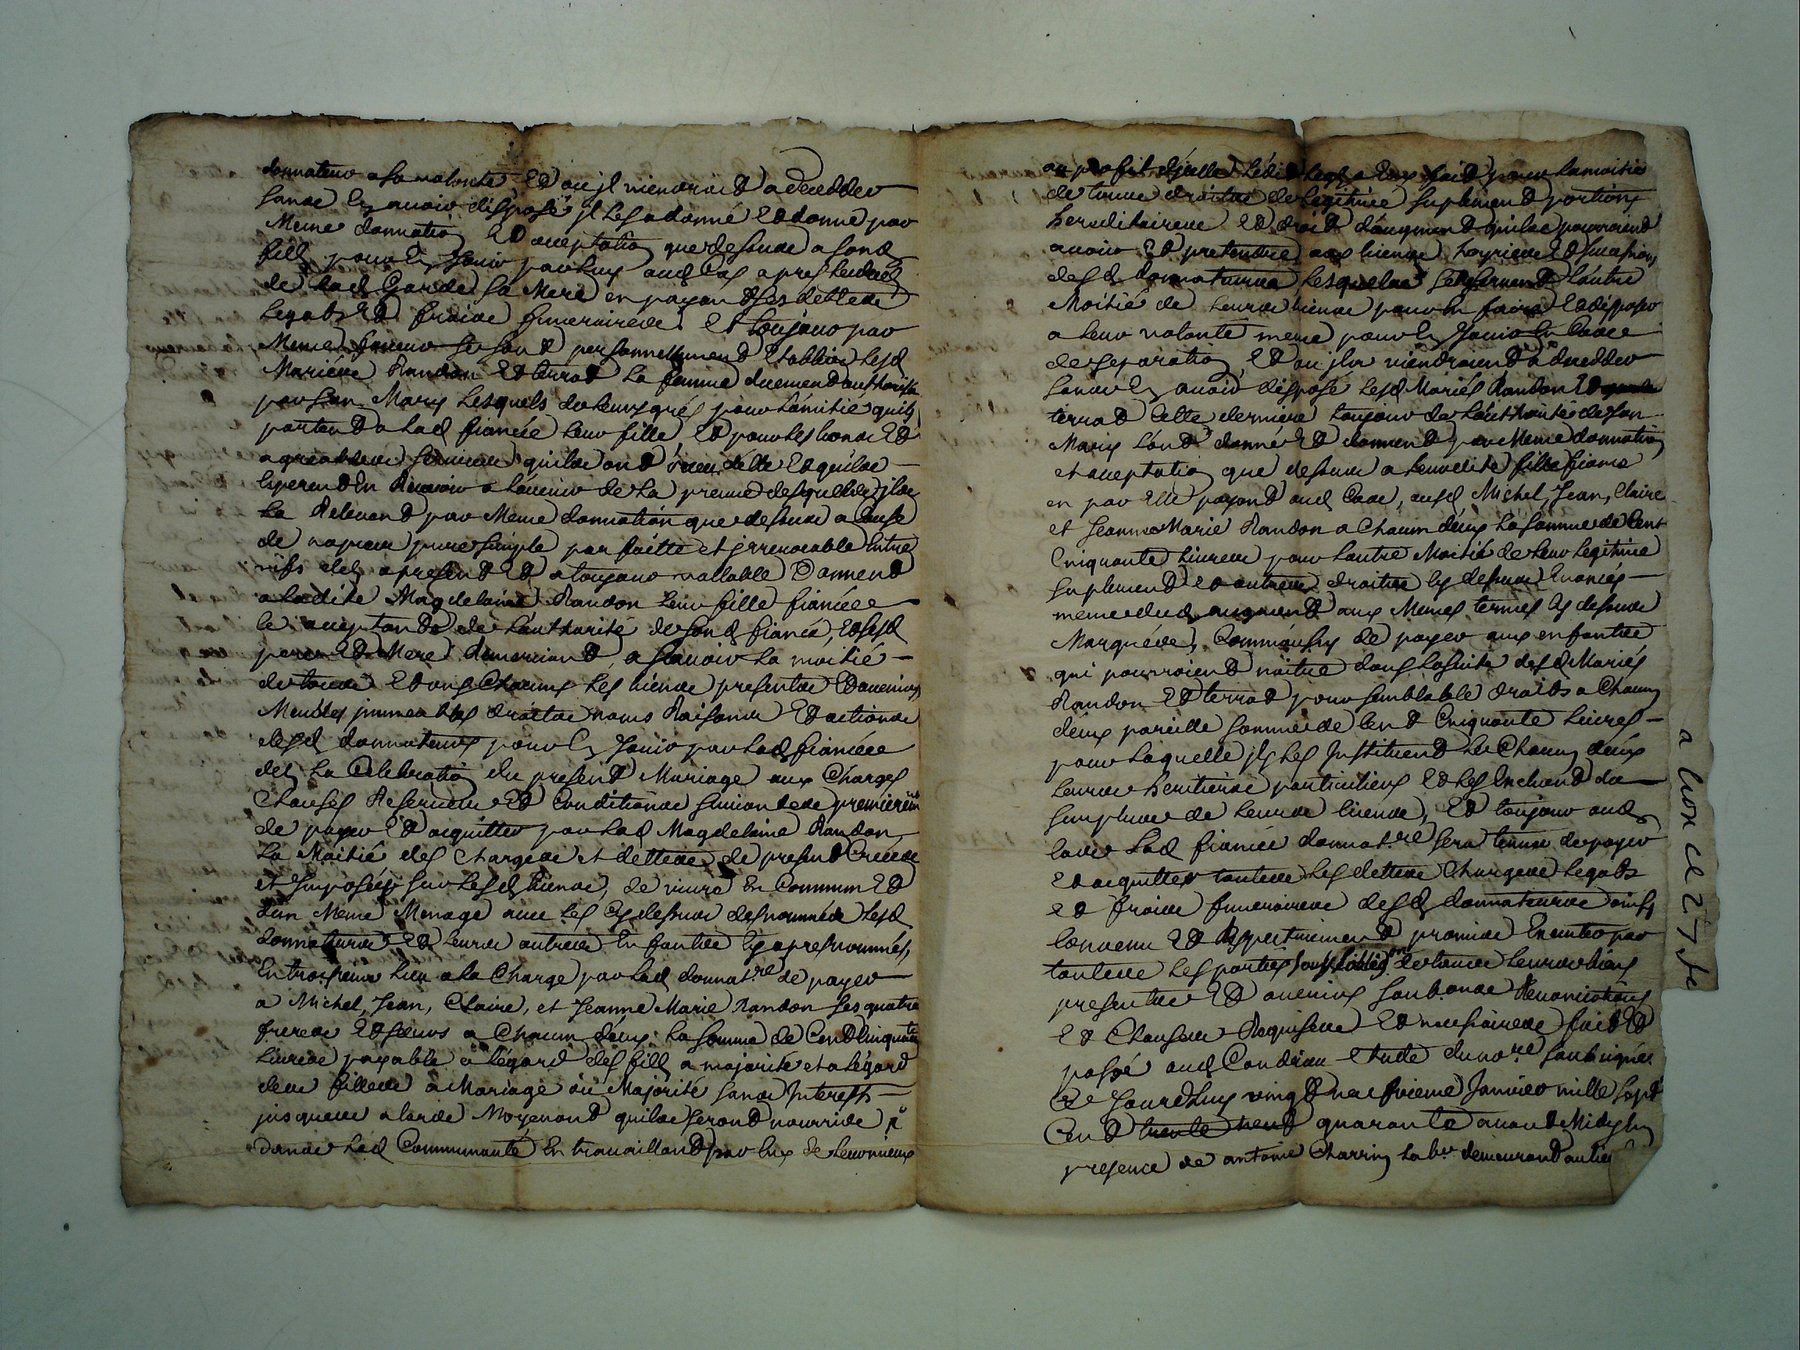 donnateur a sa volonté Et ou jl viendroit a deceder
sans En avoir disposé jl les a donné Et donne par
Meme donnation Et acceptation que dessus a sond
fils pour En Jouir par Luy aud Cas apres le deces
de lad Garde sa Mere en payant ses dettes
Legats Et fraix funeraires Et toujours par
Meme se sont personnellement Establis lesd
Mariés Randon Et terrat la femme duement authorisée
par son Mary Lesquels de leurs grés pour lamitié quils
portent a Lad fiancée leur fille Et pour les bons Et
agreables services quils ont receu delle Et quils
Esperent En Recevoir a lavenir de La preuve desquels jls
La Relevent par Meme donnation que dessus a Cause
de nopces pure simple parfaitte et jrrevocable Entre
vifs des a present Et a toujours vallable Donnent
a Ladite Magdelaine Randon leur fille fiancée
ce acceptant de Lauthorité de sond fiancé, Et sesd
pere Et Mere Remerciant, a scavoir La moitié
de tous Et uns Chacuns Les biens presents Et avenirs
Meubles jmmeubles droits noms Raisons Et actions
desd donnateurs pour En Jouir par Lad fiancée
des La Celebration du present Mariage aux Charges
Clauses Reserves Et Conditions suivantes premierem
de payer Et acquitter par Lad Magdelaine Randon
La Moitié des Charges et dettes de present Creées
et Jmposées sur Lesd biens, de vivre En Commun Et
dun Meme Menage avec Les Cy dessus desnommés Lesd
donnateurs Et Leurs autres Enfants Cy apres nommés,
En troisieme lieu a la Charge par Lad donnatre de payer
a Michel, Jean, Claire, et Jeanne Marie Randon ses quatre
freres Et soeurs a Chacun deux La somme de Cent Cinquante
Livres payable a légard des fils a majorité et a légard
des filles a Mariage ou Majorité sans Interests
jusques alors Moyenant quils seront nourris
dans Lad Communauté En travaillant par Eux de Leur mieux
au profit djcelle Ledit Legs a Eux fait pour la moitié
de tous droits de Legitime suplement portions
hereditaires Et droit daugment quils pourroient
avoir Et pretendre aux biens hoyries Et succession
desd donnateurs Lesquels se Reservent Lautre
Moitié de Leurs biens pour En faire Et disposer
a Leur volonté meme pour En Jouir En Cas
de separation, Et ou jls viendroient a deceder
sans En avoir disposé Lesd Mariés Randon Et
terrat Cette derniere toujours de Lauthorité de son
Mary Lont donné Et donnent par Meme donnation
et acceptation que dessus a leurdite fille fiancée
en par Elle payant aud Cas, ausd Michel, Jean, Claire
et Jeanne Marie Randon a Chacun deux La somme de Cent
Cinquante Livres pour Lautre Moitié de Leur Legitime
suplement Et autres droits Cy dessus Enoncés
meme dud augment aux Memes termes Cy dessus
Marqués, Comme aussy de payer aux enfants
qui pourroient naitre dans La suite desd Mariés
Randon Et terrat pour semblable droits a Chacun
deux pareille somme de Cent Cinquante Livres
pour Laquelle jls Les Jnstituent Un Chacun deux
Leurs heritiers particuliers Et Les Excluent du
surplus de Leurs biens, Et toujours aud
Cas Lad fiancée donnatre sera tenue de payer
Et acquitter toutes Les dettes Charges Legats
Et fraix funeraires desd donnateurs ainsy
Convenu Et Reciproquement promis Encontre par
toutes Les parties sous Lobligon de tous Leurs biens
presents Et avenirs soubmons Renonciations
Et Clauses Requises Et necessaires fait Et
passé aud Condrieu Etude du nore soubsigné
Ce Jourdhuy vingt neufvieme Janvier mille sept
Cent quarante avant Midy En
presence de antoine Charrin Labr demeurant au lieu
a Lion ce 27 fe